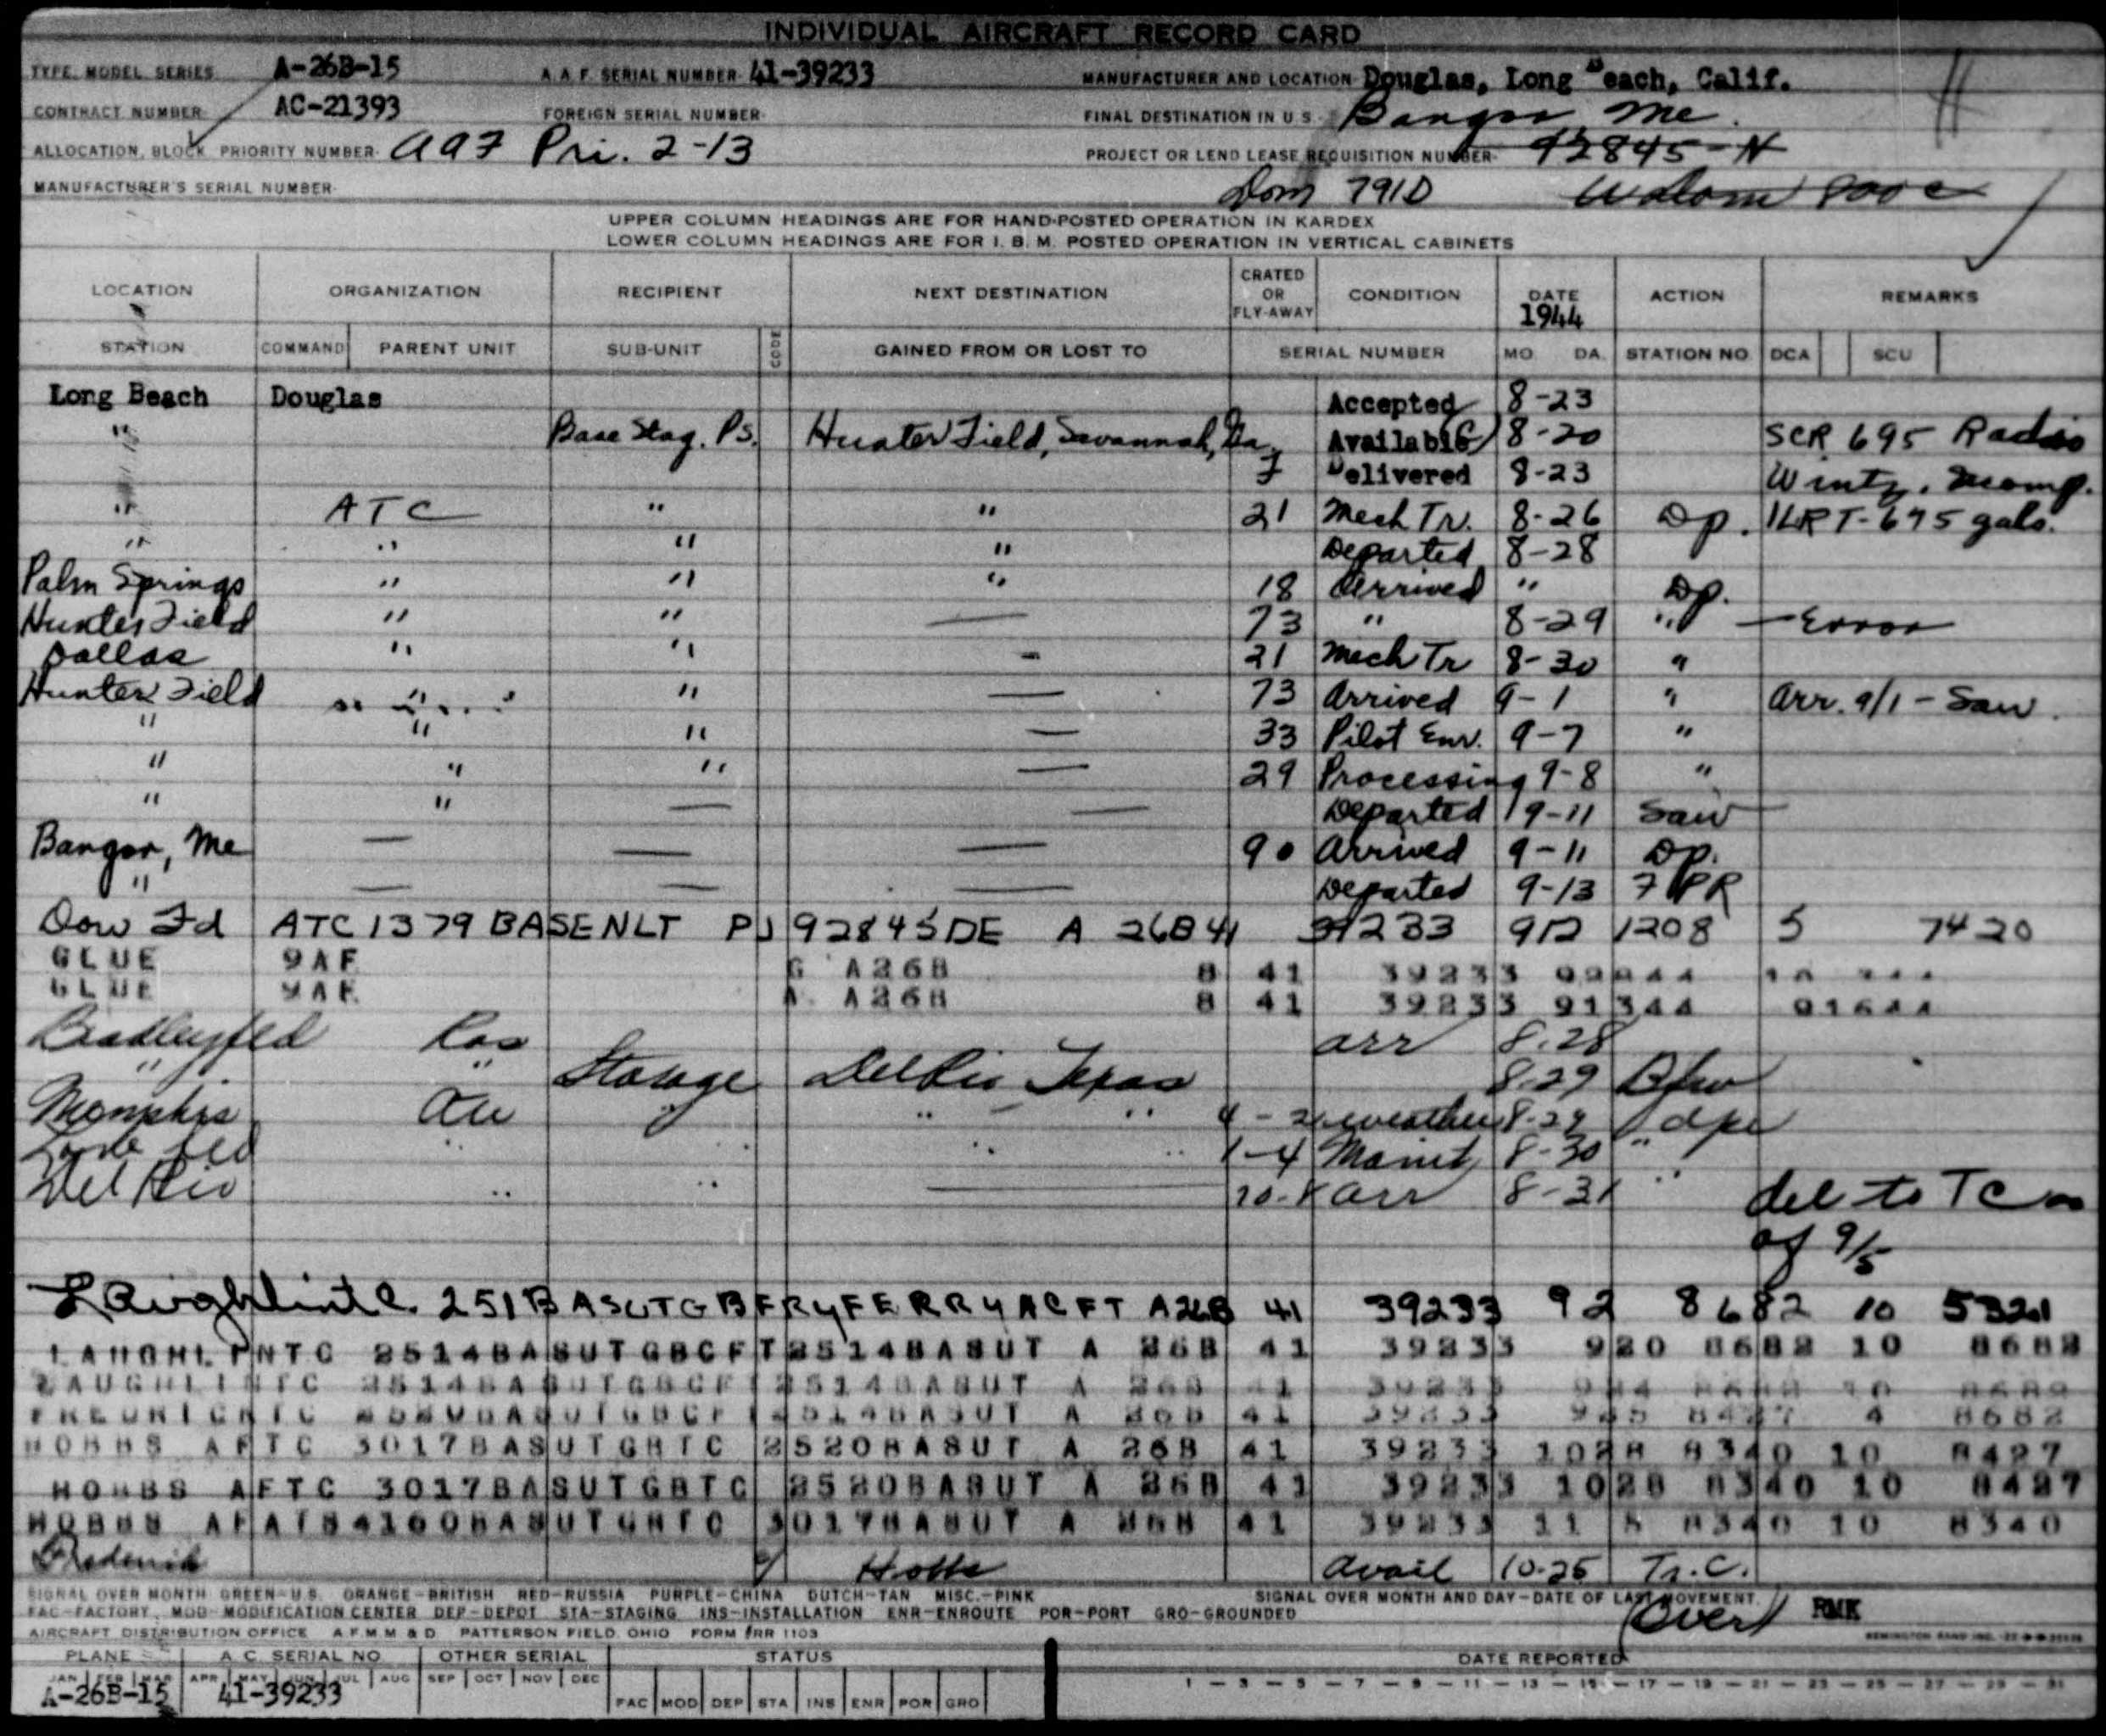 INDIVIDUAL AIRCRAFT RECORD CARD
TYPE, MODEL SERIES A-26B-15 A.A.F. SERIAL NUMBER 41-39233 MANUFACTURER AND LOCATION Douglas, Long Beach, Calif.
CONTRACT NUMBER AC-21393 FOREIGN SERIAL NUMBER FINAL DESTINATION IN U S Bangor Me.
ALLOCATION, BLOCK PRIORITY NUMBER AAF Pri. 2-13 PROJECT OR LEND LEASE REQUISITION NUMBER 92845-N
MANUFACTURER'S SERIAL NUMBER Dom 791D
UPPER COLUMN HEADINGS ARE FOR HAND-POSTED OPERATION IN KARDEX
LOWER COLUMN HEADINGS ARE FOR I. B. M. POSTED OPERATION IN VERTICAL CABINETS
LOCATION ORGANIZATION RECIPIENT NEXT DESTINATION CRATED OR FLY-AWAY CONDITION DATE 1944 ACTION REMARKS
STATION COMMAND PARENT UNIT SUB-UNIT CODE GAINED FROM OR LOST TO SERIAL NUMBER MO. DA. STATION NO. DCA SCU
Long Beach Douglas Accepted 8-23
" Base Stag. Ps. Hunter Field, Savannah, Ga. Available 8-20 SCR 695 Radio
F Delivered 8-23 Wintz.
" ATC " " 21 Mech Tr. 8-26 Dp. 1LRT-675 gals.
" " " " Departed 8-28
Palm Springs " " " 18 Arrived " Dp.
Hunter Field " " — 73 " 8-29 " — Error
Dallas " " - 21 Mech Tr 8-30 "
Hunter Field " " — 73 Arrived 9-1 " Arr. 9/1 - Saw.
" " " — 33 Pilot Enr. 9-7 "
" " " — 29 Processing 9-8 "
" " — — Departed 9-11 Saw
Bangor, Me — — — 90 Arrived 9-11 Dp.
" — — — Departed 9-13 7 PR
Dow Fd ATC 1379 BASENLT PJ 92845DE A 26B 41 39233 912 1208 5 7420
GLUE 9AF G A26B 8 41 39233
GLUE 9AF A A26B 8 41 39233 91344 91644
Bradleyfield arr 8.28
" " Storage Del Rio Texas 8.29
Memphis " " weather 8-29
" " " 1-4 Maint 8-30 "
Del Rio " " — arr 8-31 " del to TC as
of 9/5
Laughlin TC 251BASUTGBFRYFERRYACFT A26B 41 39233 92 8682 10 5321
LAUGHLINTC 2514BASUTGBCFT2514BASUT A 26B 41 39233 920 8682 10 8682
LAUGHLINTC 2514BASUTGBCFT2514BASUT A 26B 41 39233
FREDRICKTC 2520BASUTGBCFT2514BASUT A 26B 41 39233 925 8427 4 8682
HOBBS AFTC 3017BASUTGBTC 2520BASUT A 26B 41 39233 1028 8340 10 8427
HOBBS AFTC 3017BASUTGBTC 2520BASUT A 26B 41 39233 1028 8340 10 8427
HOBBS AFATS4160BASUTGBTC 3017BASUT A 26B 41 39233 11 5 8340 10 8340
Frederick Hobbs avail 10-25 Tr. C.
SIGNAL OVER MONTH GREEN-U.S. ORANGE-BRITISH RED-RUSSIA PURPLE-CHINA DUTCH-TAN MISC.-PINK SIGNAL OVER MONTH AND DAY-DATE OF LAST MOVEMENT.
FAC-FACTORY, MOD-MODIFICATION CENTER DEP-DEPOT STA-STAGING INS-INSTALLATION ENR-ENROUTE POR-PORT GRO-GROUNDED (Over) RMK
AIRCRAFT DISTRIBUTION OFFICE A.F.M.M & D. PATTERSON FIELD, OHIO FORM #RR 1103
PLANE A. C. SERIAL NO OTHER SERIAL STATUS DATE REPORTED
JAN FEB MAR APR MAY JUN JUL AUG SEP OCT NOV DEC 1 - 3 - 5 - 7 - 9 - 11 - 13 - 15 - 17 - 19 - 21 - 23 - 25 - 27 - 29 - 31
A-26B-15 41-39233 FAC MOD DEP STA INS ENR POR GRO